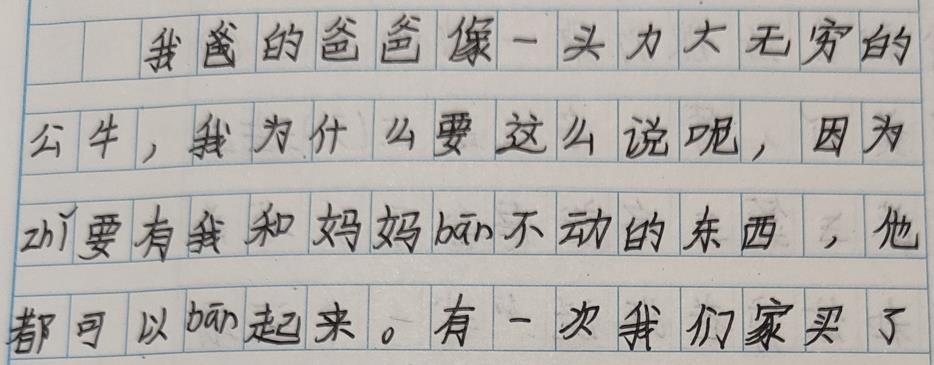 我爸的爸爸像一头力大无穷的
公牛，我为什么要这么说呢，因为
zhǐ要有我和妈妈bān不动的东西，他
都可以bān起来。有一次我们家买了